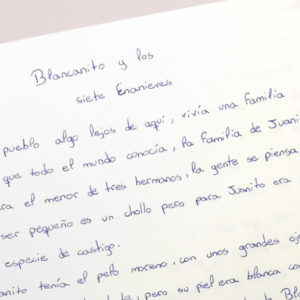 Blancanito y los
siete Enanieves
pueblo algo lejos de aquí, vivía una familia
que todo el mundo conocía, la familia de Juani
ra el menor de tres hermanos, la gente se piensa
ser pequeño es un chollo pero para Juanito era
especie de castigo.
anito tenía el pelo moreno, con unos grandes oj
pero su piel era blanca con